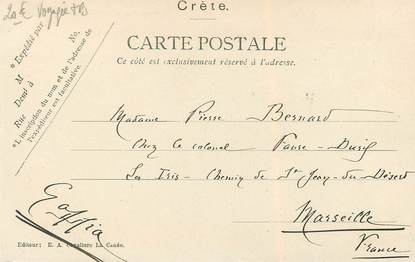 20 € Voyagée TB
Crète.
CARTE POSTALE
Ce côté est exclusivement réservé à l'adresse.
* Expédié par
M
Demt à
Rue No.
*L'inscription du nom et de l'adresse de
l'expéditeur est facultative.
Madame Pierre Bernard
Chez le colonel Faure-
Les Iris - Chemin de St Jean-du-Désert
Marseille
France
Editeur: E. A. Cavaliero La Canée.